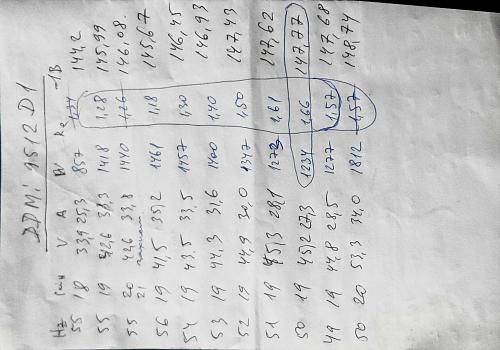 DDMi 9512D1
Hz сан V A W Rg -1B
55 18 33,9 25,3 857 144,2
55 19 42,6 33,3 1418 1,28 145,99
55 20 42,6 33,8 1440 1,26 146,08
21
56 19 41,5 35,2 1461 1,18 145,67
54 19 43,5 33,5 1457 1,30 146,45
53 19 44,3 31,6 1400 1,40 146,93
52 19 44,9 30,0 1347 1,50 147,43
51 19 45,3 28,1 1273 1,61 147,62
50 19 45,2 27,3 1234 1,66 147,77
49 19 44,8 28,5 1277 1,57 147,68
50 20 53,3 34,0 1812 1,57 148,74